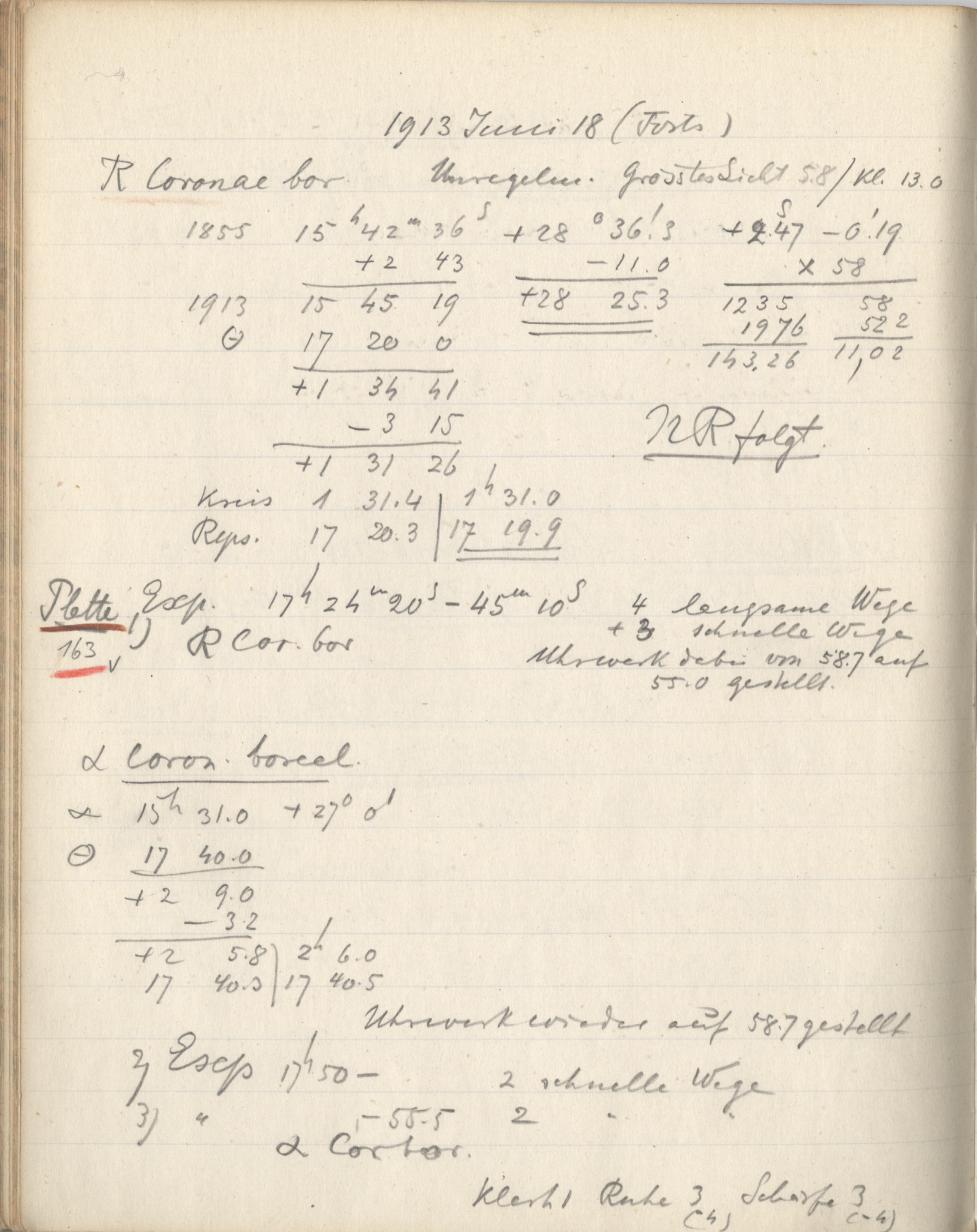 1913 Juni 18 (Forts)
R Coronae bor. Unregelm. Grösstes Licht 5.8 / Kl. 13.0
1855 15 h 42 m 36 s +28 ° 36!3 +2.47 s -0!19
+2 43 -11.0 × 58
1913 15 45 19 +28 25.3 1235 58
1976 522
Θ 17 20 0 143.26 11,02
+1 34 41
-3 15 NR folgt.
+1 31 26
Kreis 1 31.4 | 1 h 31.0
Reps. 17 20.3 | 17 19.9
Platte 1) Exp. 17 h 24 m 20 s - 45 m 10 s 4 langsame Wege
163 v R Cor. bor + 3 schnelle Wege
Uhrwerk dabei von 58.7 auf
55.0 gestellt.
α Coron. boreal.
α 15 h 31.0 +27° 0'
Θ 17 40.0
+2 9.0
-3.2
+2 5.8 | 2 h 6.0
17 40.3 | 17 40.5
Uhrwerk wieder auf 58.7 gestellt
2) Exp 17 h 50 - 2 schnelle Wege
3) " - 55.5 2 " "
α Cor bor.
Klarh 1 Ruhe 3 (-4) Schärfe 3 (-4)